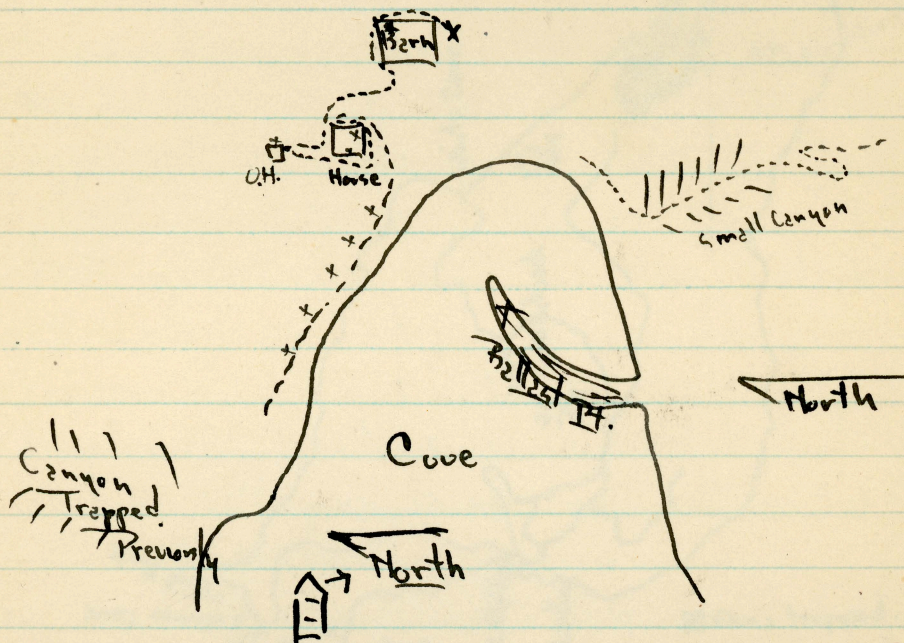 Barn
O.H.
House
Small Canyon
Ballast Pt.
North
Cove
Canyon
Trapped
Previously
North